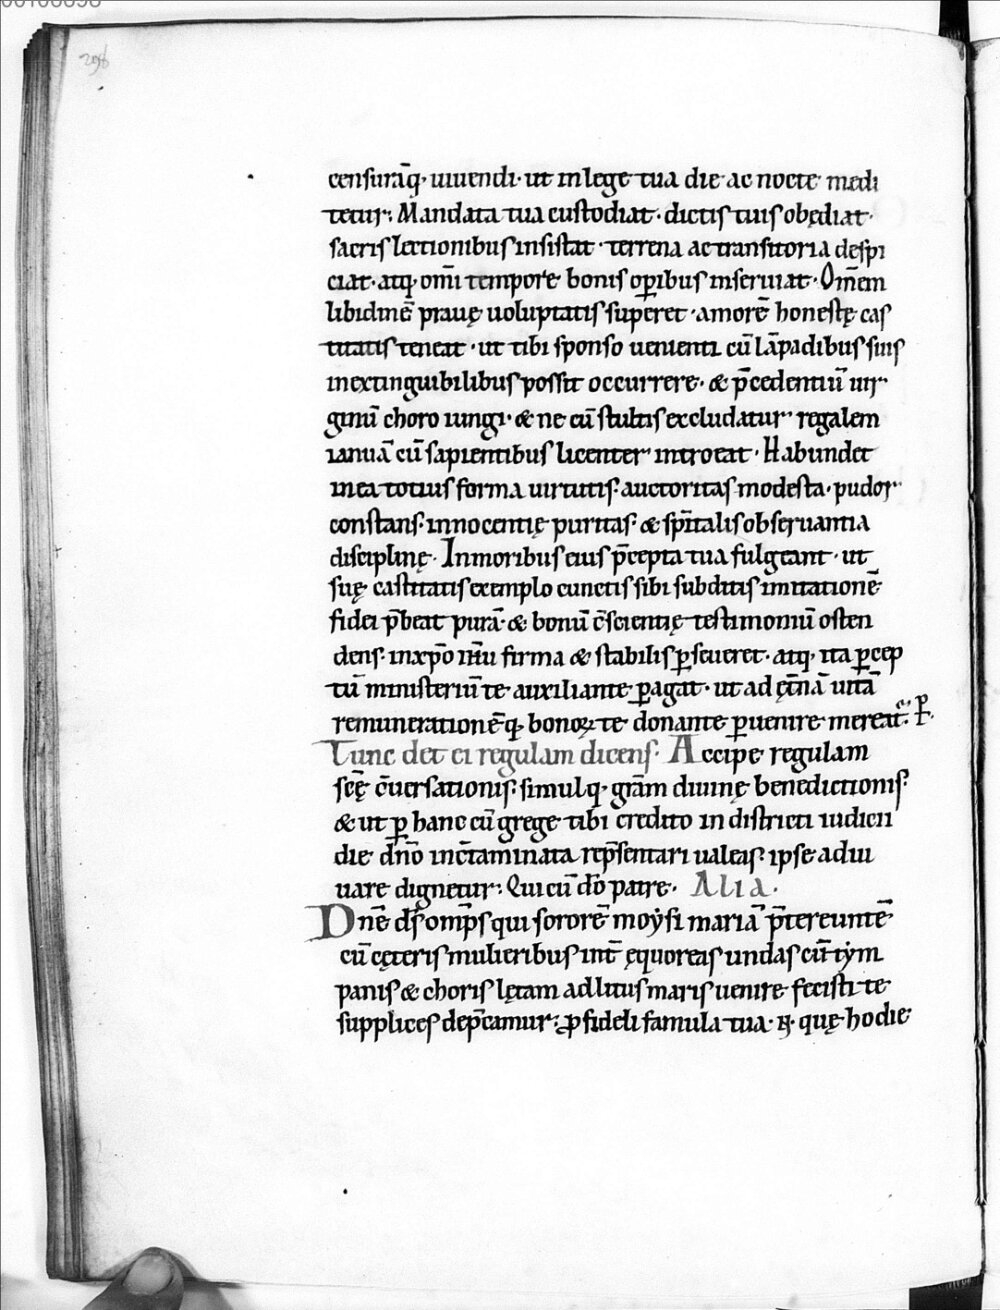 298
censurāq; uiuendi· ut in lege tua die ac nocte medi
tetur· Mandata tua custodiat· dictis tuis obędiat·
sacris lectionibus insistat· terrena ac transitoria despi
ciat· atq; om̄i tempore bonis oꝑibus inseruiat· Om̄em
libidinē prauę uoluptatis superet· amorē honestę cas
titatis teneat· ut tibi sponso uenienti cū lāpadibus suis
inextinguibilibus possit occurrere· & p̄cedentiū uir
ginū choro iungi· & ne cū stultis excludatur regalem
ianuā cū sapientibus licenter introeat· Habundet
in ea totius forma uirtutis· auctoritas modesta· pudor
constans· innocentię puritas· & sp̄italis obseruantia
disciplinę· In moribus eius p̄cepta tua fulgeant· ut
suę castitatis exemplo cunctis sibi subditis imitationē
fidei p̄beat purā· & bonū c̄scientię testimoniū osten
dens· in xp̄o ih̄u firma & stabilis ꝑseueret· atq; ita ꝑcep
tū ministeriū te auxiliante ꝑagat· ut ad ęt̄nā uitā
remunerationēq; bonoꝝ te donante ꝑuenire mereat᷑· P̄·
Tunc det ei regulam dicens· Accipe regulam
sc̄ę c̄uersationis· simulq; gr̄am diuinę benedictionis·
& ut ꝑ hanc cū grege tibi credito in districti iudicii
die dn̄o inc̄taminata rep̄sentari ualeas· ipse adiu
uare dignetur· Qui cū dō patre· Alia·
Dn̄e ds̄ omp̄s qui sororē moẏsi mariā p̄tereuntē
cū cęteris mulieribus int̄ ęquoreas undas cū tẏm
panis & choris lętam ad litus maris uenire fecisti te
supplices dep̄camur· ꝓ fideli famula tua· N̄· quę hodie